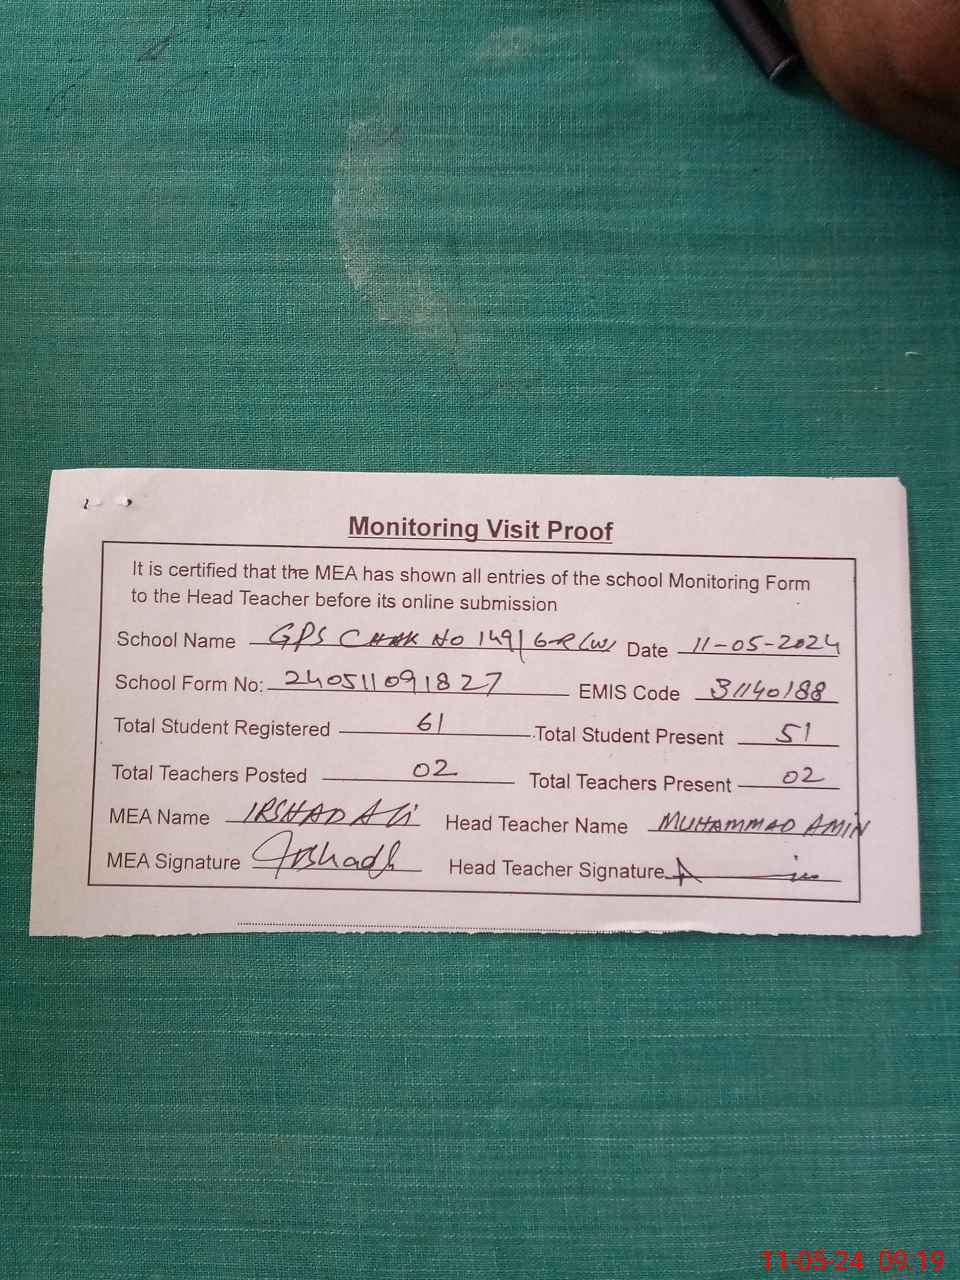 Monitoring Visit Proof
It is certified that the MEA has shown all entries of the school Monitoring Form
to the Head Teacher before its online submission
School Name GPS CHAK NO 149/6-R (W) Date 11-05-2024
School Form No: 240511091827 EMIS Code 31140188
Total Student Registered 61 Total Student Present 51
Total Teachers Posted 02 Total Teachers Present 02
MEA Name IRSHAD ALI Head Teacher Name MUHAMMAD AMIN
MEA Signature Irshad Head Teacher Signature
11-05-24 09:19